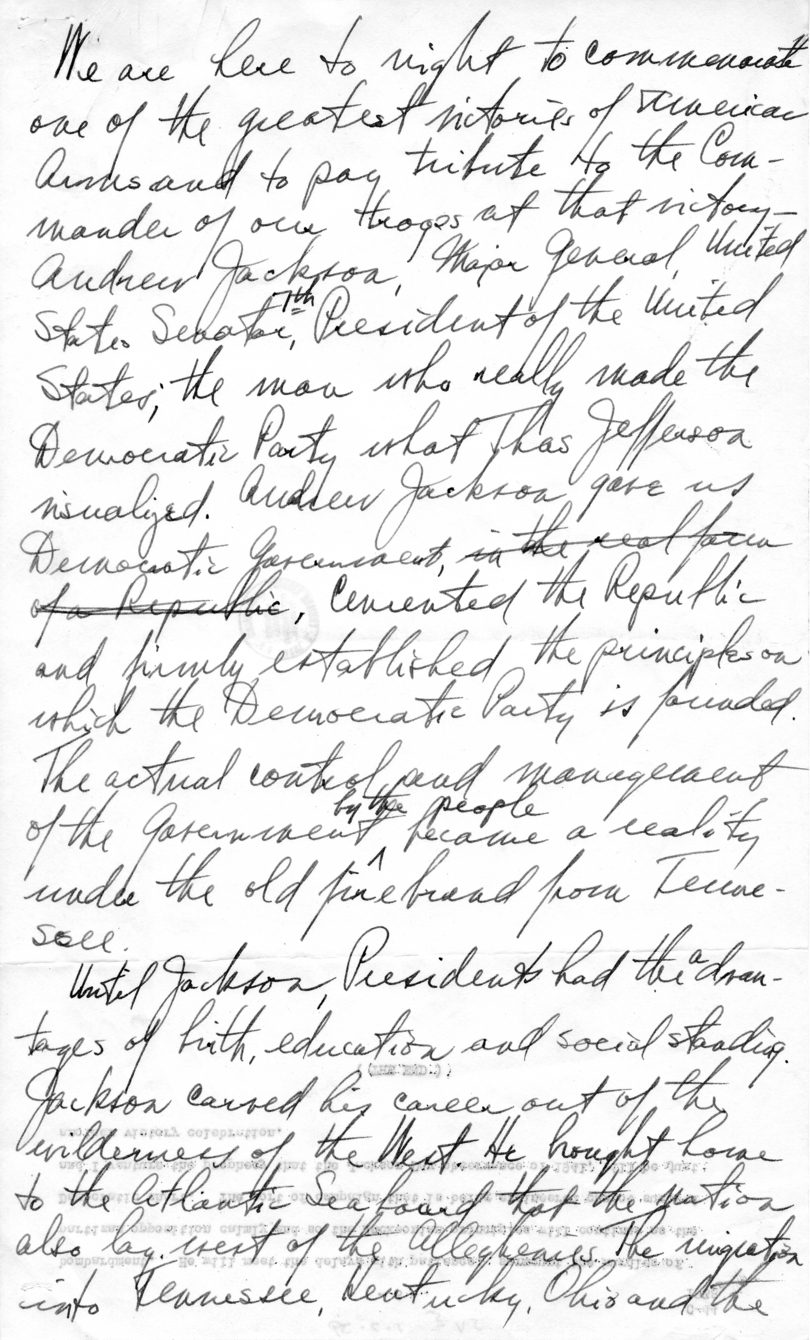 We are here to night to commemorate
one of the greatest victories of American
Arms and to pay tribute to the Com-
mander of our troops at that victory—
Andrew Jackson, Major General, United
States Senator, 7th President of the United
States; the man who really made the
Democratic Party what Thos Jefferson
visualized. Andrew Jackson gave us
Democratic Government, in the real form
of a Republic, Cemented the Republic
and firmly established the principles on
which the Democratic Party is founded.
The actual control and management
of the Government by the people became a reality
under the old firebrand from Tenne-
ssee.
Until Jackson, Presidents had the advan-
tages of birth, education and social standing.
(THE END.)
Jackson carved his career out of the
wilderness of the West. He brought home
to the Atlantic Seaboard that the nation
also lay west of the Alleghenies. The migration
into Tennessee, Kentucky, Ohio and the